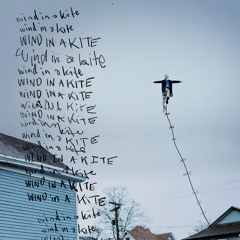 wind in a kite
wind in a kite
WIND IN A KITE
Wind in a kite
wind in a kite
WIND IN A KITE
WIND IN A KITE
WIND IN A KITE
wind in a kite
wind in a kite
wind in a kite
WIND IN A KITE
wind in a kite
WIND IN A KITE
WIND IN A KITE
wind in a kite
wind in a kite
WIND IN A KITE